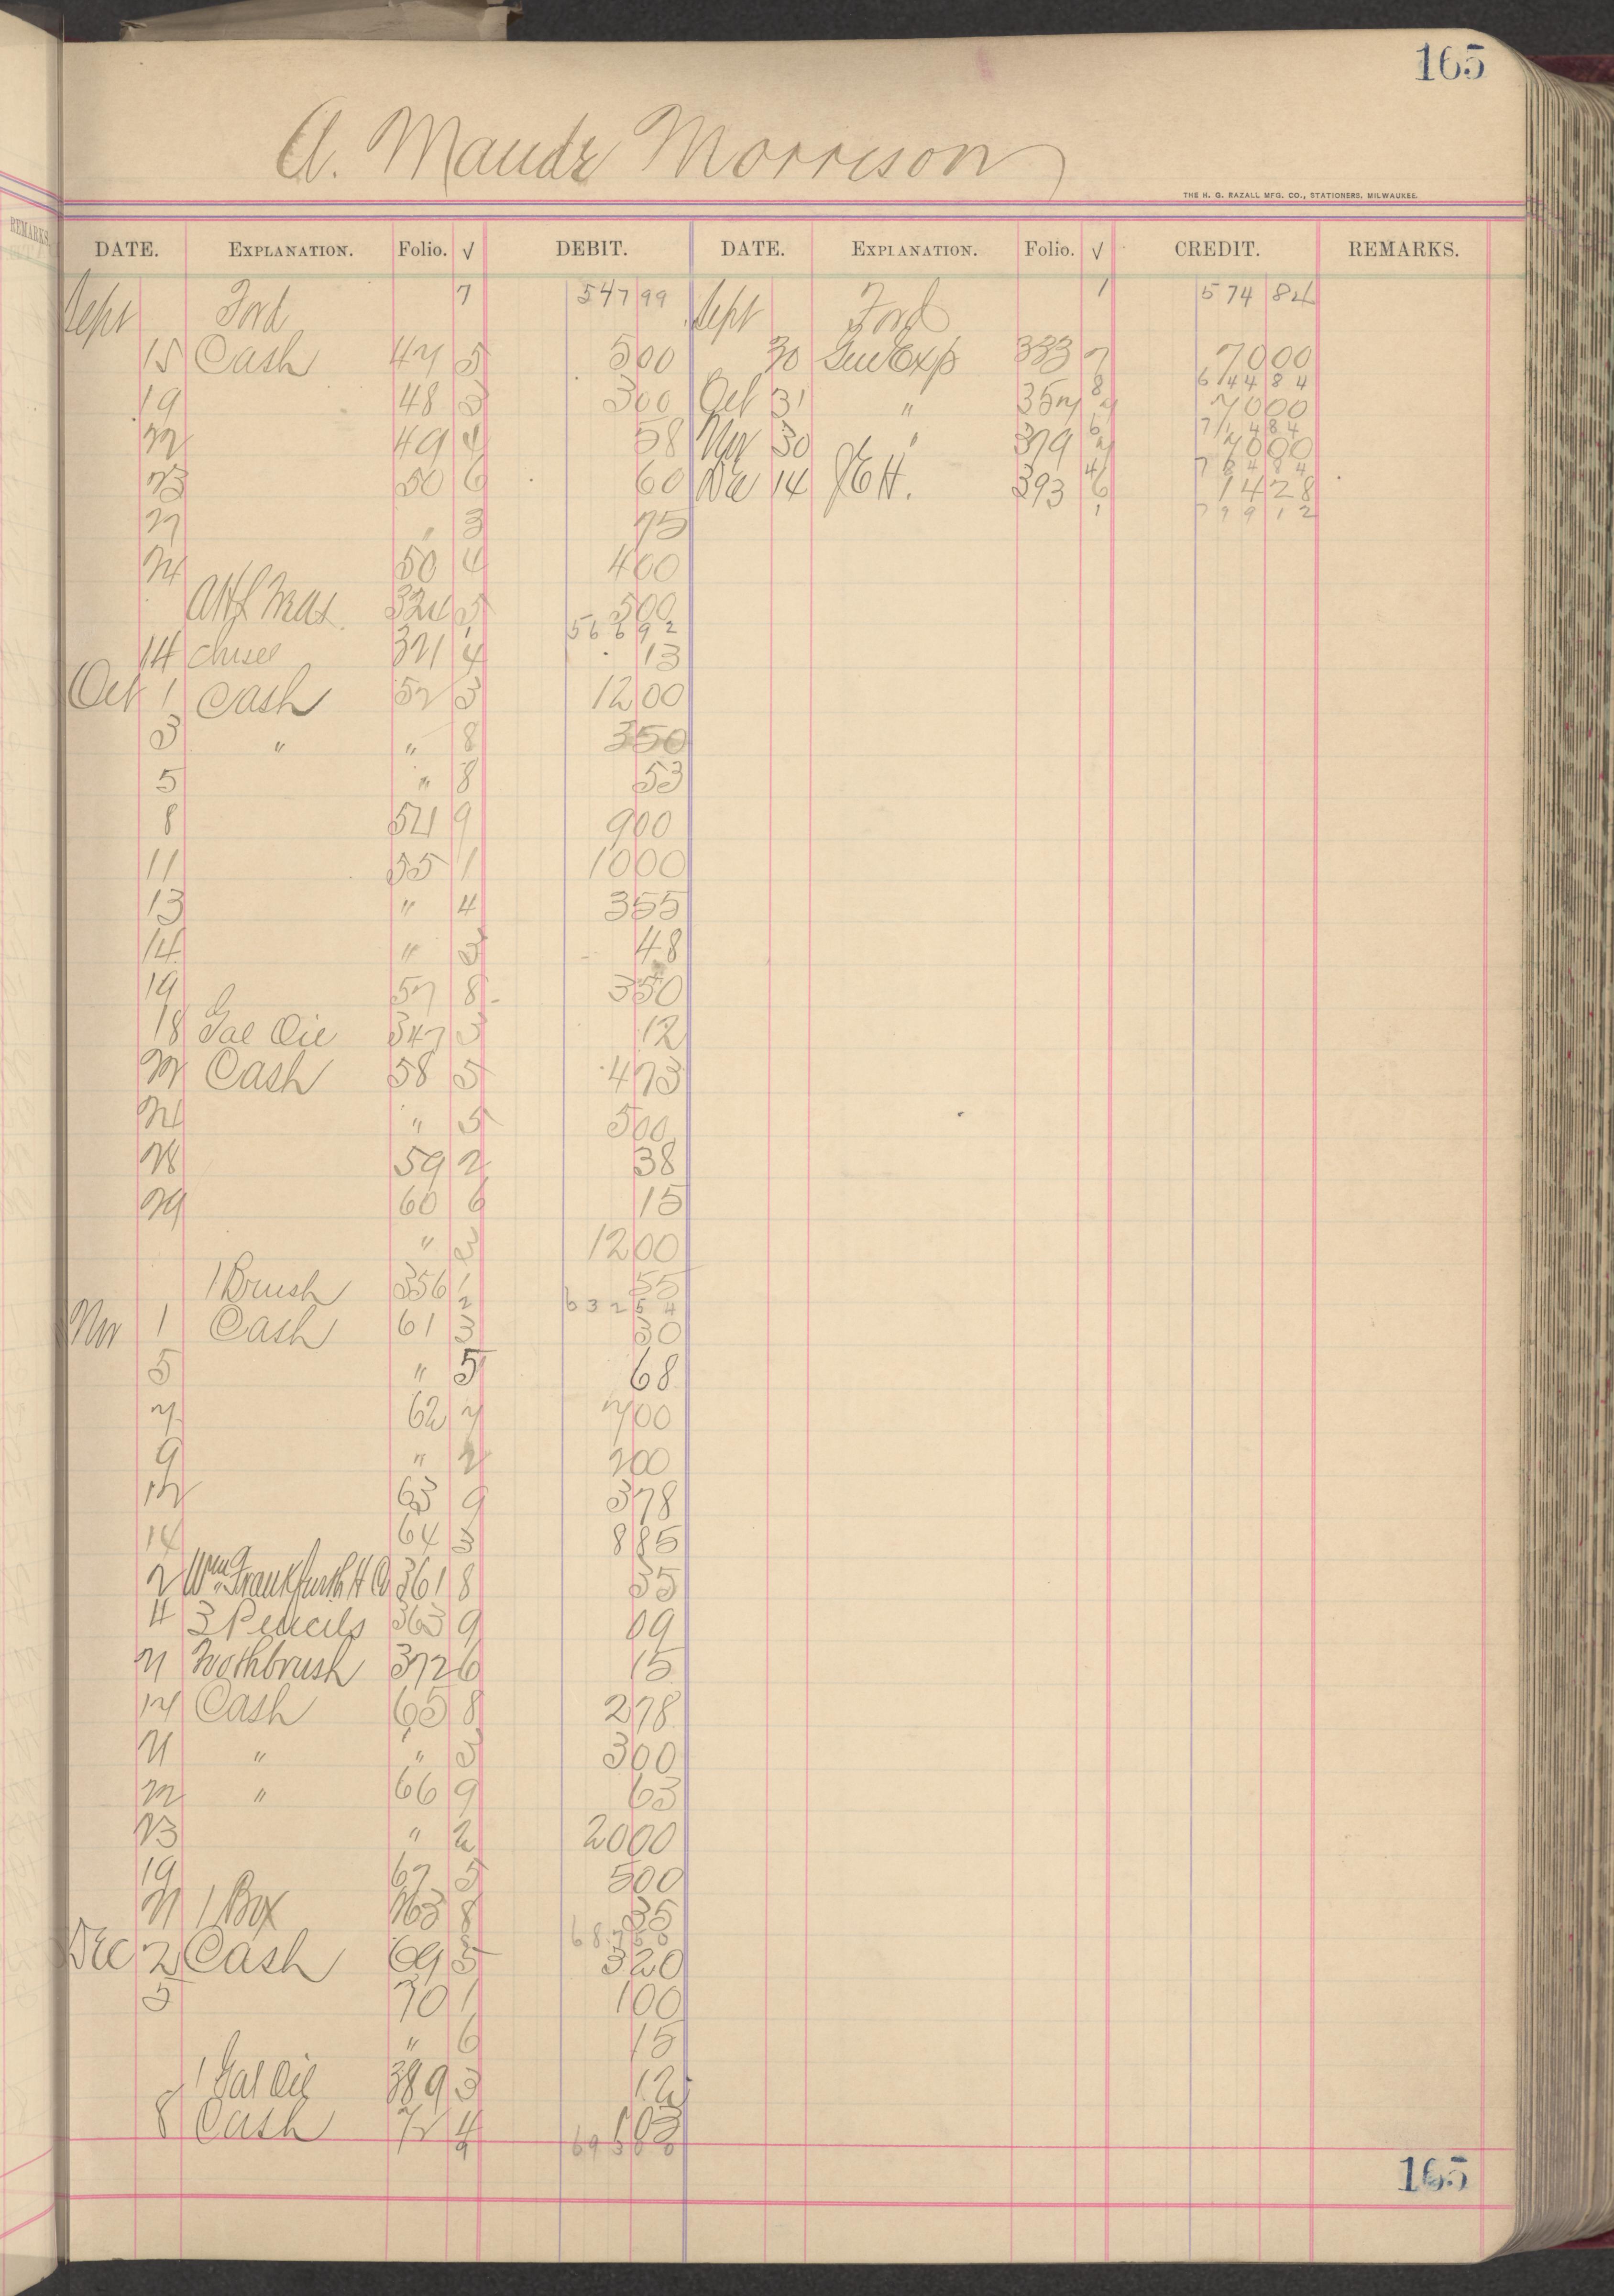 165
A. Maude Morrison
THE H. G. RAZALL MFG. CO., STATIONERS, MILWAUKEE.
DATE. EXPLANATION. Folio. √ DEBIT. DATE. EXPLANATION. Folio. √ CREDIT. REMARKS.
Sept Ford 7 547 99 Sept Ford 1 574 84
15 Cash 47 5 5 00 30 Gen Exp 333 7 70 00
644 84
19 48 3 3 00 Oct 31 " 357 7 70 00
8
714 84
22 49 4 58 Nov 30 " 379 7 70 00
6
784 84
23 50 6 60 Dec 14 J E H. 393 6 14 28
4
27 " 3 75 1 799 12
24 50 4 4 00
324 5 5 00
1 566 92
14 chisel 321 4 13
Oct 1 Cash 52 3 12 00
3 " " 8 3 50
5 " 8 53
8 54 9 9 00
11 55 1 10 00
13 " 4 3 55
14 " 3 48
19 57 8 3 50
18 Gal Oil 347 3 12
22 Cash 58 5 4 73
24 " 5 5 00
28 59 2 38
29 60 6 15
" 3 12 00
1 Brush 356 1 55
2 632 54
Nov 1 Cash 61 3 30
5 " 5 68
7 62 7 7 00
9 " 2 2 00
12 63 9 3 78
14 64 3 8 85
2 Wm Frankfurth H Co 361 8 35
4 3 Pencils 363 9 09
21 Toothbrush 372 6 15
14 Cash 65 8 2 78
21 " " 3 3 00
22 " 66 9 63
23 " 2 20 00
19 67 5 5 00
21 1 Box 763 8 35
Dec 2 Cash 69 5 3 20
5 70 1 1 00
" 6 15
1 Gal Oil 389 3 12
8 Cash 72 4 1 03
9
165